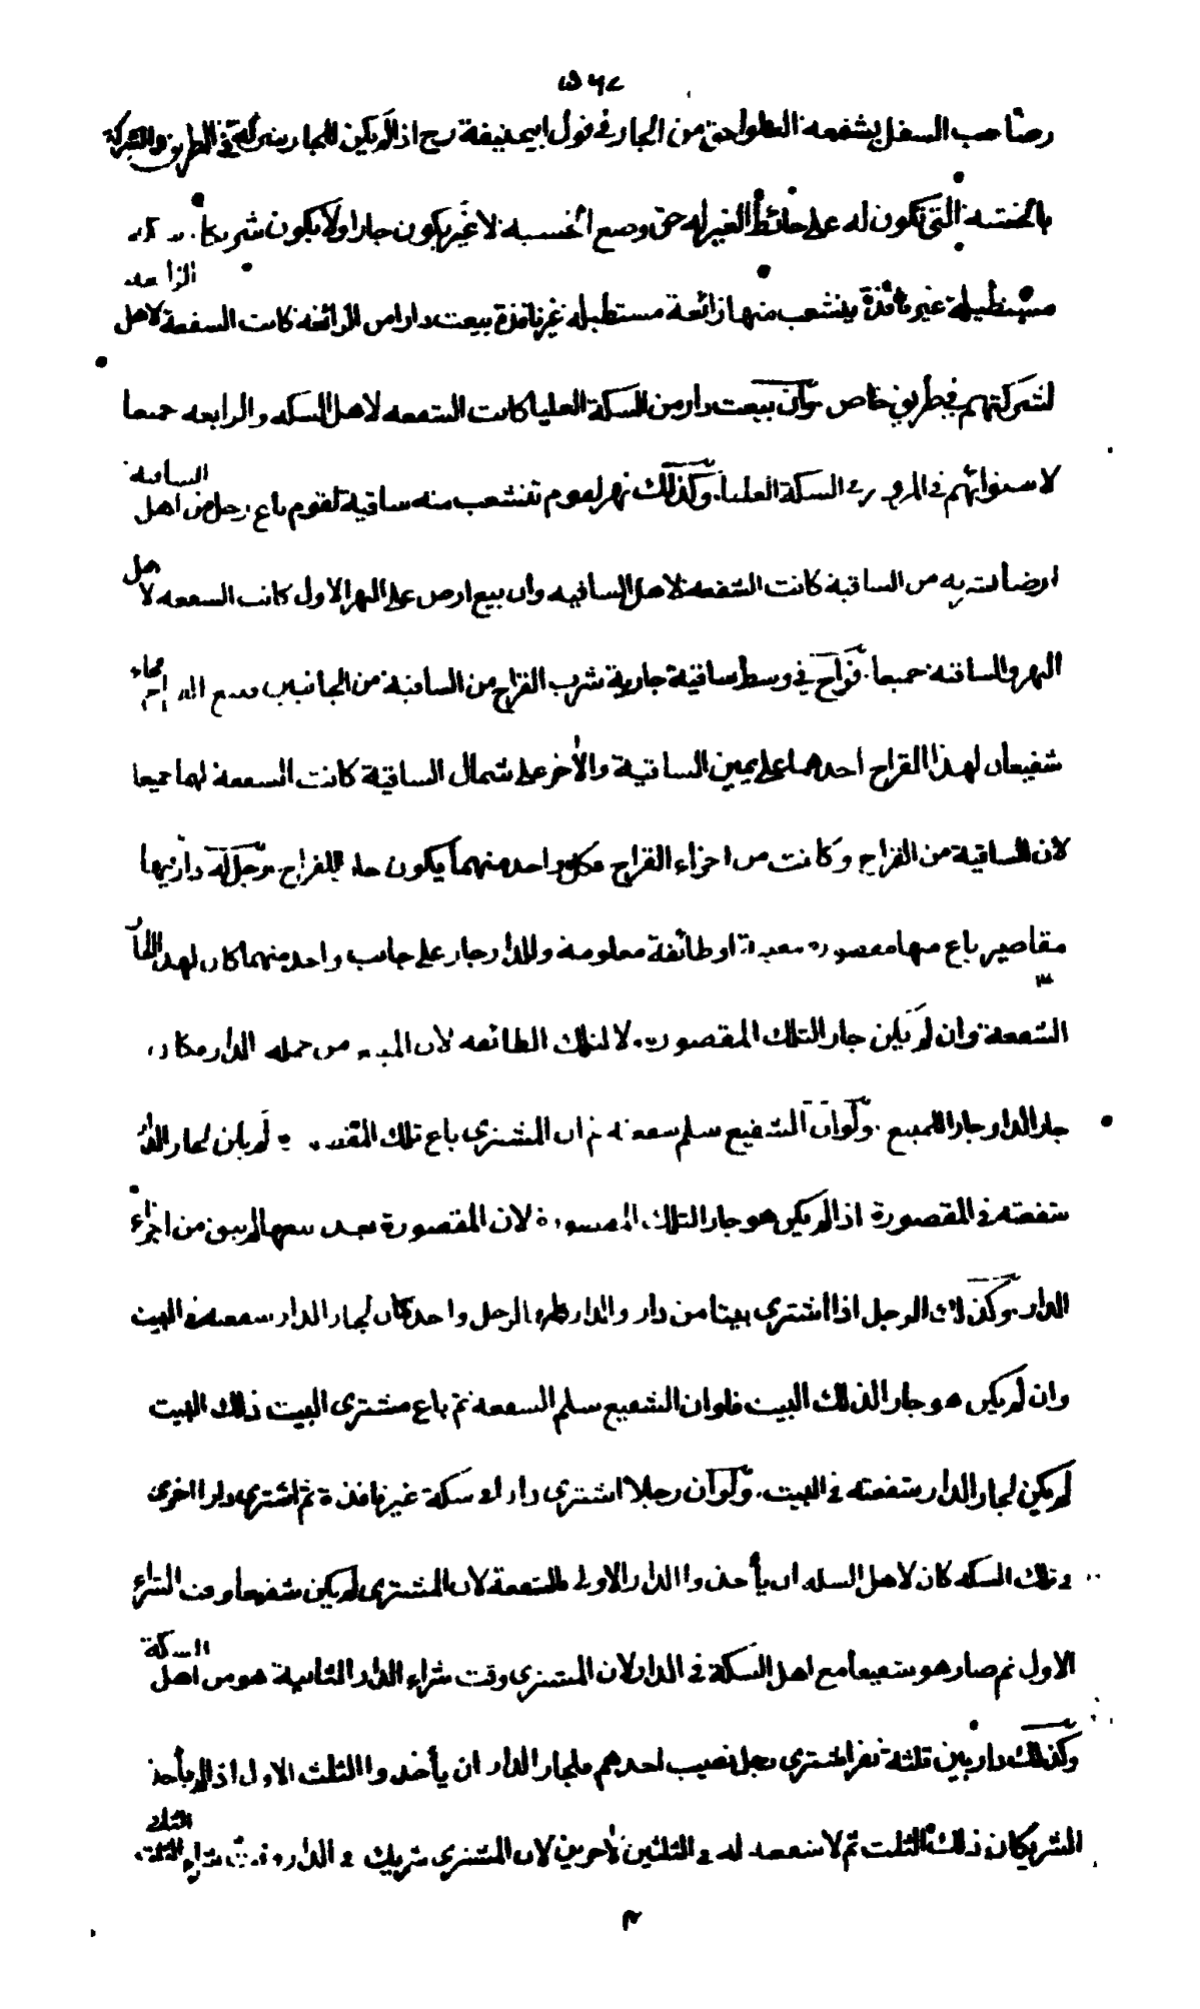 ٥٧٨
وصاحب السفل بشفعة العلو احق من الجار في قول ابيحنيفة رح اذا لم يكن للجار شركة في الطريق والشركة
بالخشبة التى تكون له على حائط الغير له حق وضع الخشبة لا غير يكون جارا ولا يكون شريكا سكة
مستطيلة غير نافذة ينشعب منها زائغة مستطيلة غير نافذة بيعت دار من الزائغة كانت الشفعة لاهل الزائغة
لشركتهم في طريق خاص وان بيعت دار من السكة العليا كانت الشفعة لاهل السكة والزايغة جميعا
لاستوائهم في المرور في السكة العليا وكذلك نهر لقوم تنشعب منه ساقية لقوم باع رجل من اهل الساقية
ارضا شربه من الساقية كانت الشفعة لاهل الساقية وان بيع ارض على النهر الاول كانت الشفعة لاهل
النهر والساقية جميعا قراح في وسط ساقية جارية شرب القراح من الساقية من الجانبين فبيع القراح فجاء
شفيعان لهذا القراح احدهما على يمين الساقية والأخر على شمال الساقية كانت الشفعة لهما جميعا
لان الساقية من القراح وكانت من اجزاء القراح فكل واحد منهما يكون جار للقراح رجل له دار فيها
مقاصير باع منها مقصورة معينة او طائفة معلومة وللدار جار على جانب واحد منهما كان لهذا الجار
الشفعة وان لم يكن جار التلك المقصورة ولا لتلك الطائفة لان المبيع من جملة الدار فكان
جار الدار جار المبيع ولو ان الشفيع سلم شفعته ثم ان المشترى باع تلك المقصورة لم يكن لجار الدار
شفعته في المقصورة اذا لم يكن هو جار التلك المقصورة لان المقصورة بعد بيعها لم يبق من اجزاء
الدار وكذلك الرجل اذا اشترى بيتا من دار والدار كلها لرجل واحد كان لجار الدار شفعة في البيت
وان لم يكن هو جار الذلك البيت فلو ان الشفيع سلم الشفعة ثم باع مشترى البيت ذلك البيت
لم يكن لجار الدار شفعته في البيت ولو ان رجلا اشترى دارا في سكة غير نافذة ثم اشترى دارا اخرى
في تلك السكة كان لاهل السكة ان يأخذوا الدار الاولى بالشفعة لان المشترى لم يكن شفيعا وقت الشراء
الاول ثم صار هو شفيعا مع اهل السكة في الدار لان المشترى وقت شراء الدار الثانية هو من اهل السكة
وكذلك دار بين ثلثة نفر اشترى رجل نصيب احدهم فلجار الدار ان يأخذوا الثلث الاول اذا لم يأخذ
الشريكان ذلك الثلث ثم لا شفعة له في الثلثين لأخرين لان المشترى شريك في الدار وقت شراء الثلث الثاني